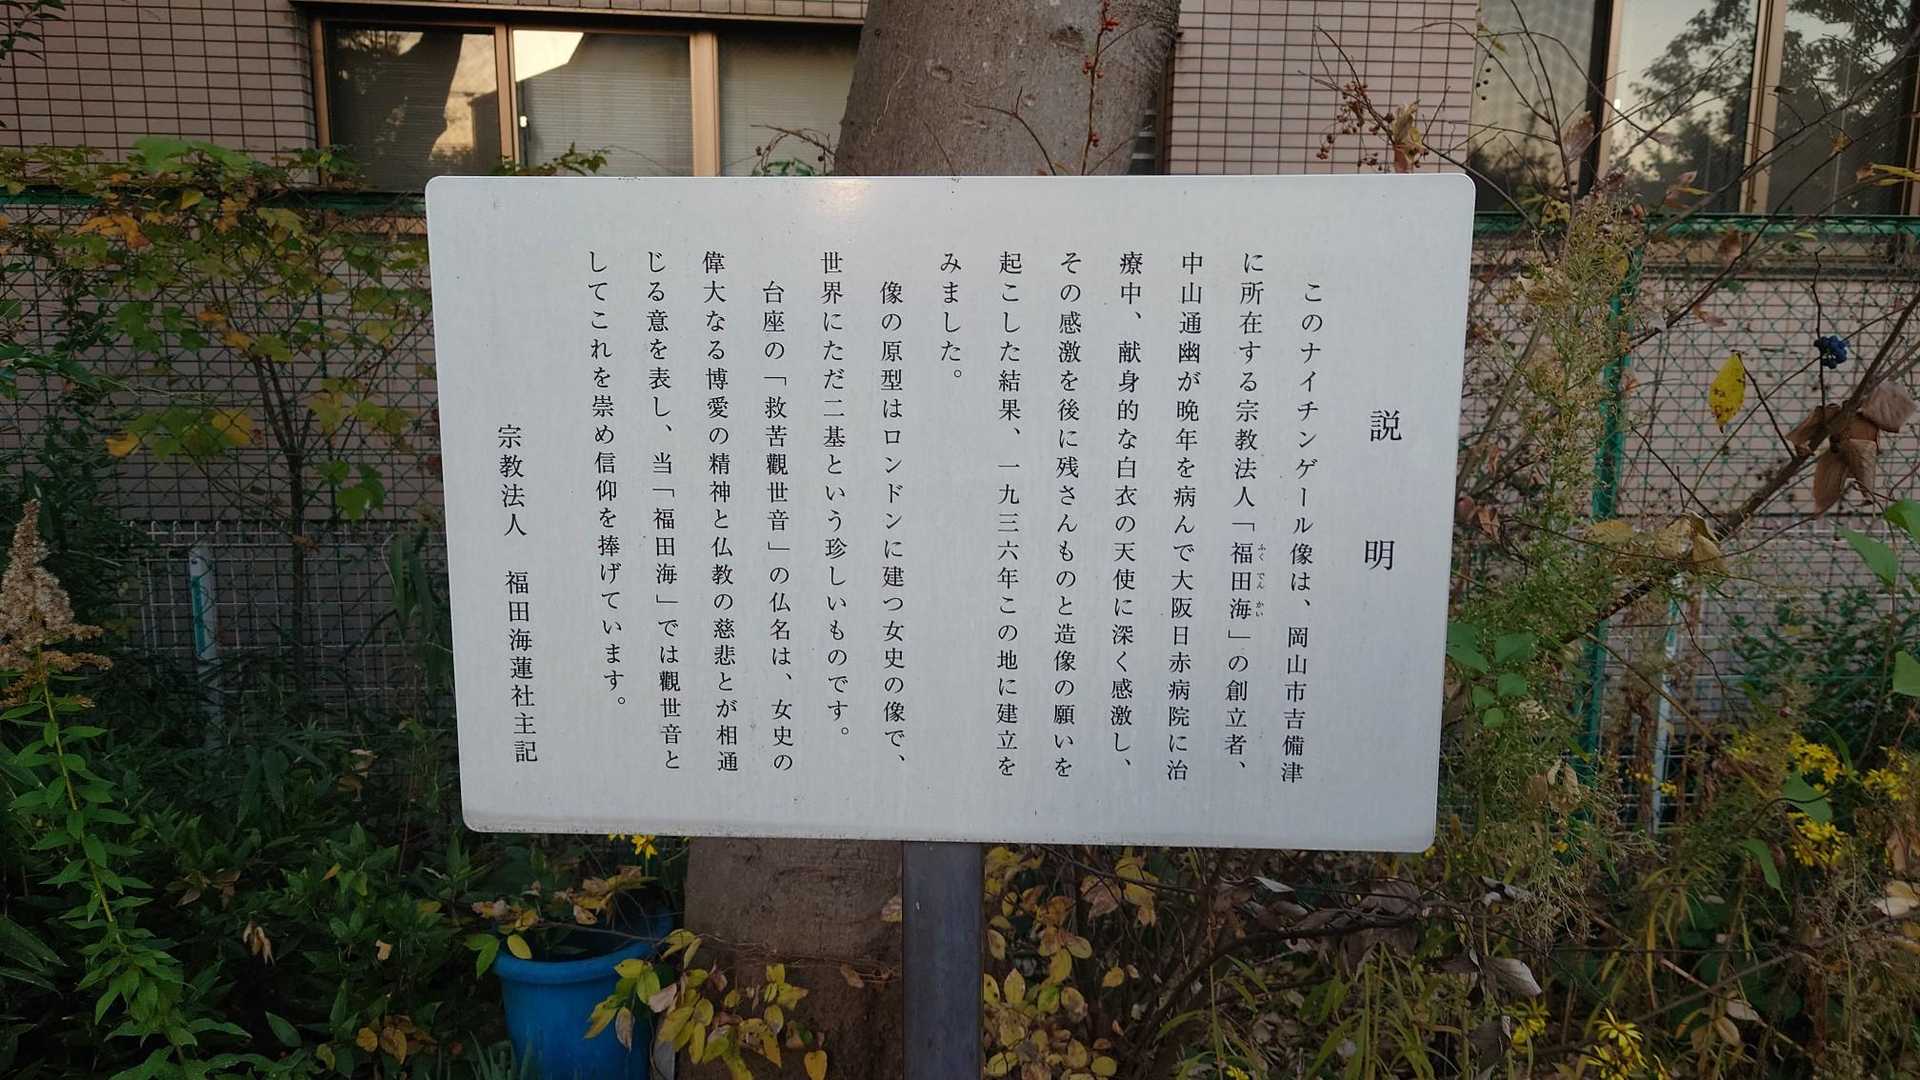 説明
このナイチンゲール像は、岡山市吉備津
に所在する宗教法人「福田海」の創立者、
ふくでんかい
中山通幽が晩年を病んで大阪日赤病院に治
療中、献身的な白衣の天使に深く感激し、
その感激を後に残さんものと造像の願いを
起こした結果、一九三六年この地に建立を
みました。
像の原型はロンドンに建つ女史の像で、
世界にただ二基という珍しいものです。
台座の「救苦觀世音」の仏名は、女史の
偉大なる博愛の精神と仏教の慈悲とが相通
じる意を表し、当「福田海」では觀世音と
してこれを崇め信仰を捧げています。
宗教法人 福田海蓮社主記